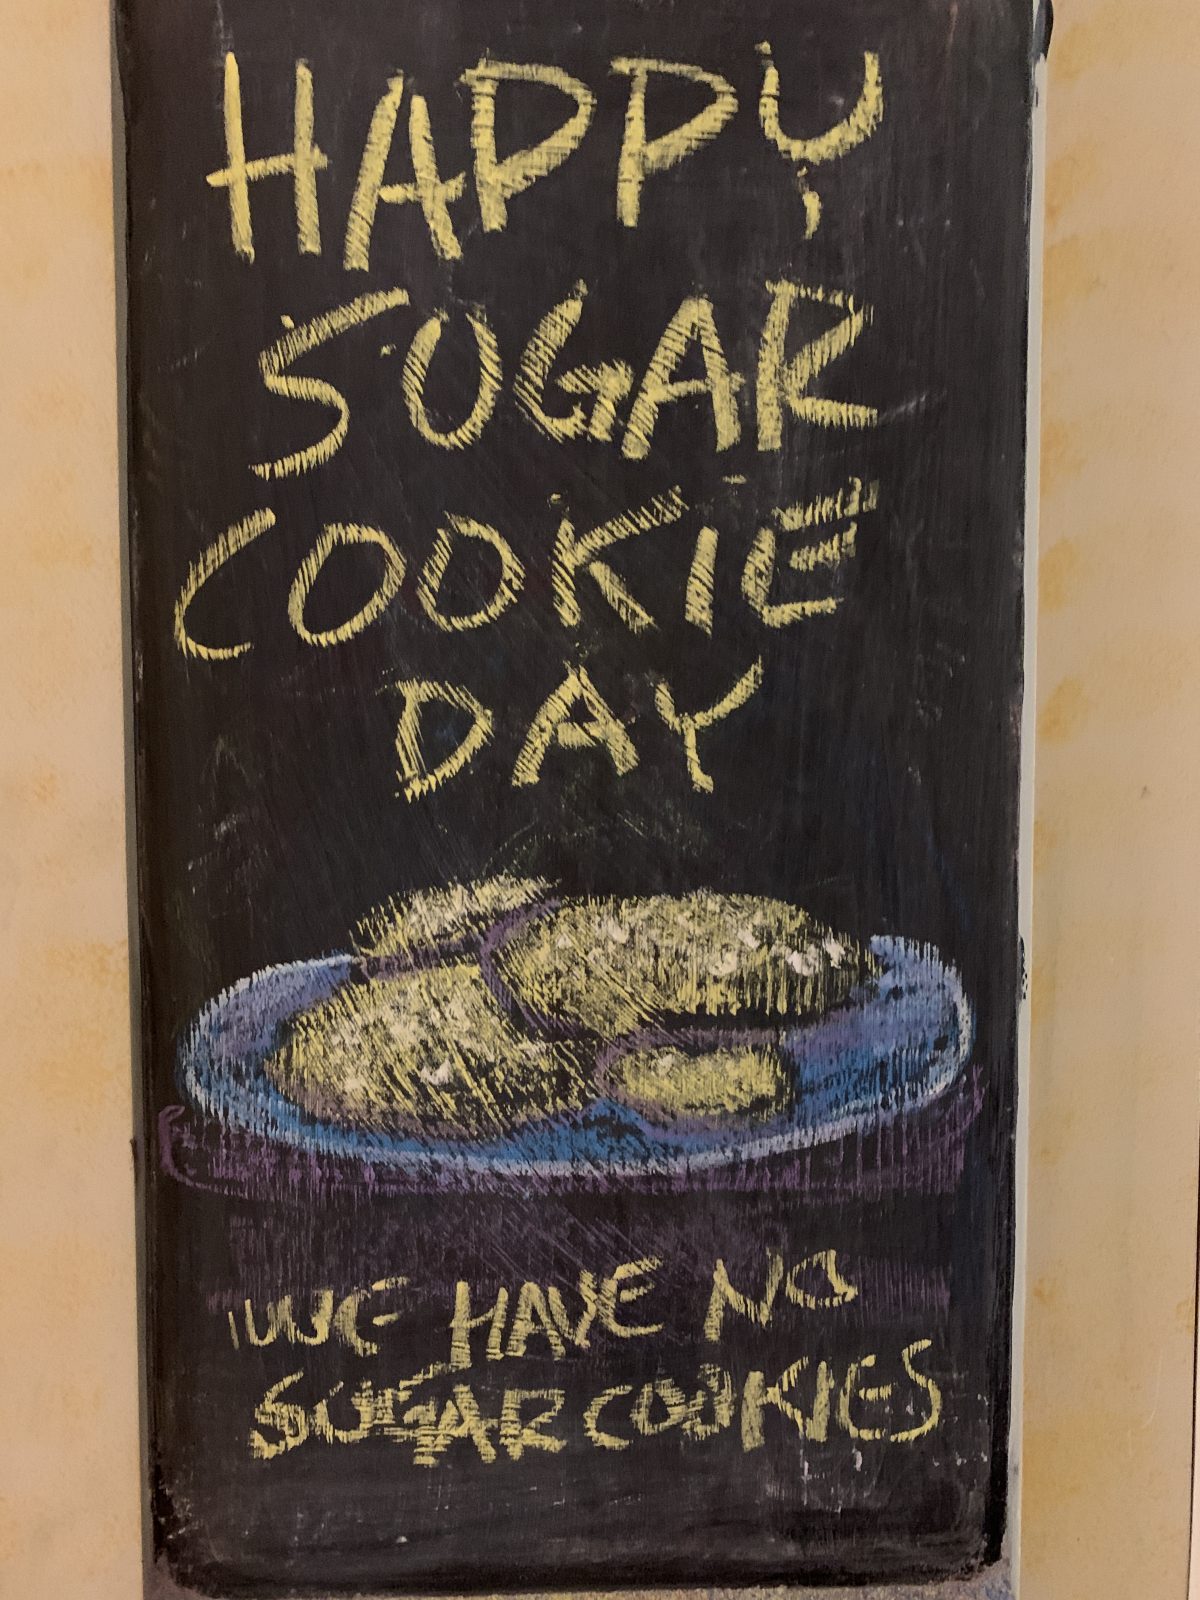 HAPPY
SUGAR
COOKIE
DAY
WE HAVE NO
SUGAR COOKIES